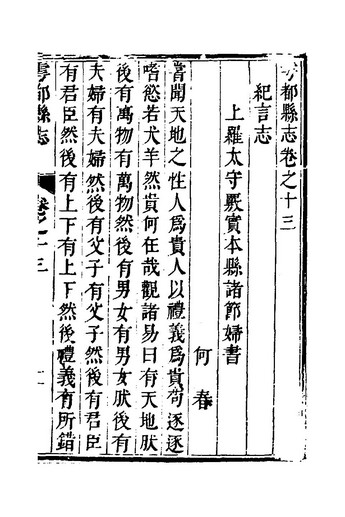 雩都縣志卷之十三
紀言志
上羅太守覈實本縣諸節婦書
何春
嘗聞天地之性人爲貴人以禮義爲貴苟逐逐
嗜慾若犬羊然貴何在哉觀諸易曰有天地肰
後有萬物有萬物然後有男女有男女肰後有
夫婦有夫婦然後有父子有父子然後有君臣
有君臣然後有上下有上下然後禮義有所錯
雩都縣志
卷之十三
一